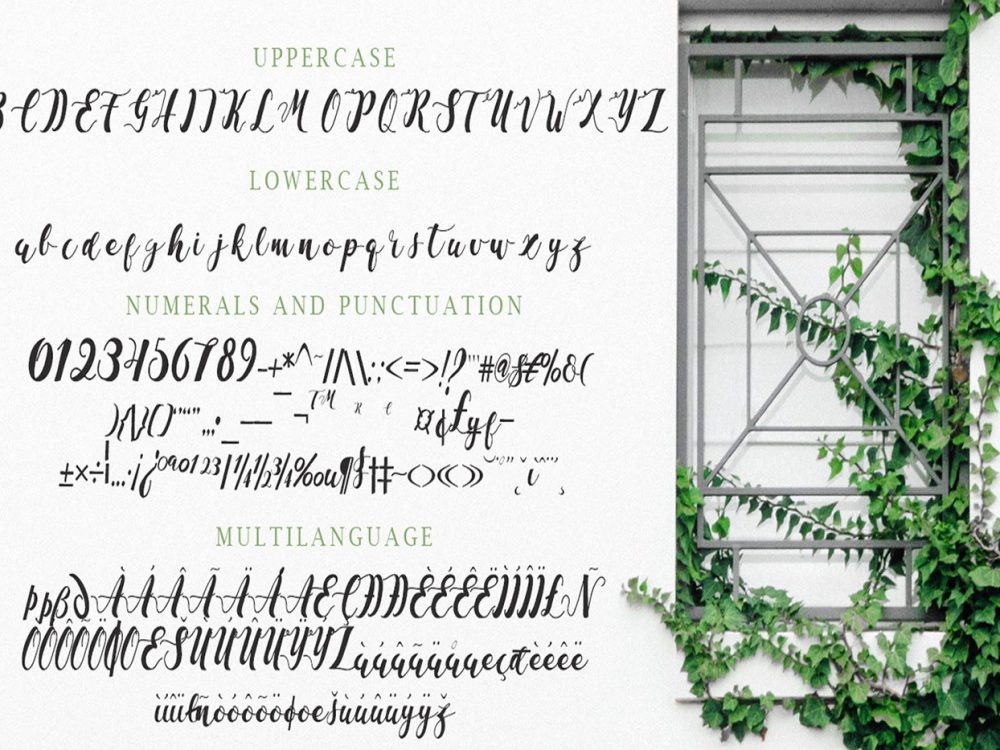 UPPERCASE
BCDEFGHIJKLM OPQRSTUVWXYZ
LOWERCASE
abcdefghijklmnopqrstuvwxyz
NUMERALS AND PUNCTUATION
0123456789-+*^~/|\\:;<=>!?'"#@$£€%&(
){}[]()‘’“”
±×÷¡...·¡¿ºªº¹²³|¼½¾‰
MULTILANGUAGE
Þþß∂ÀÁÂÃÄÅÆÇÐÈÉÊËÌÍÎÏŁÑ
ÒÓÔÕÖØŒŠÙÚÛÜÝŸŽàáâãäåæçèéêë
ìíîïłñòóôõöøœšùúûüýÿž